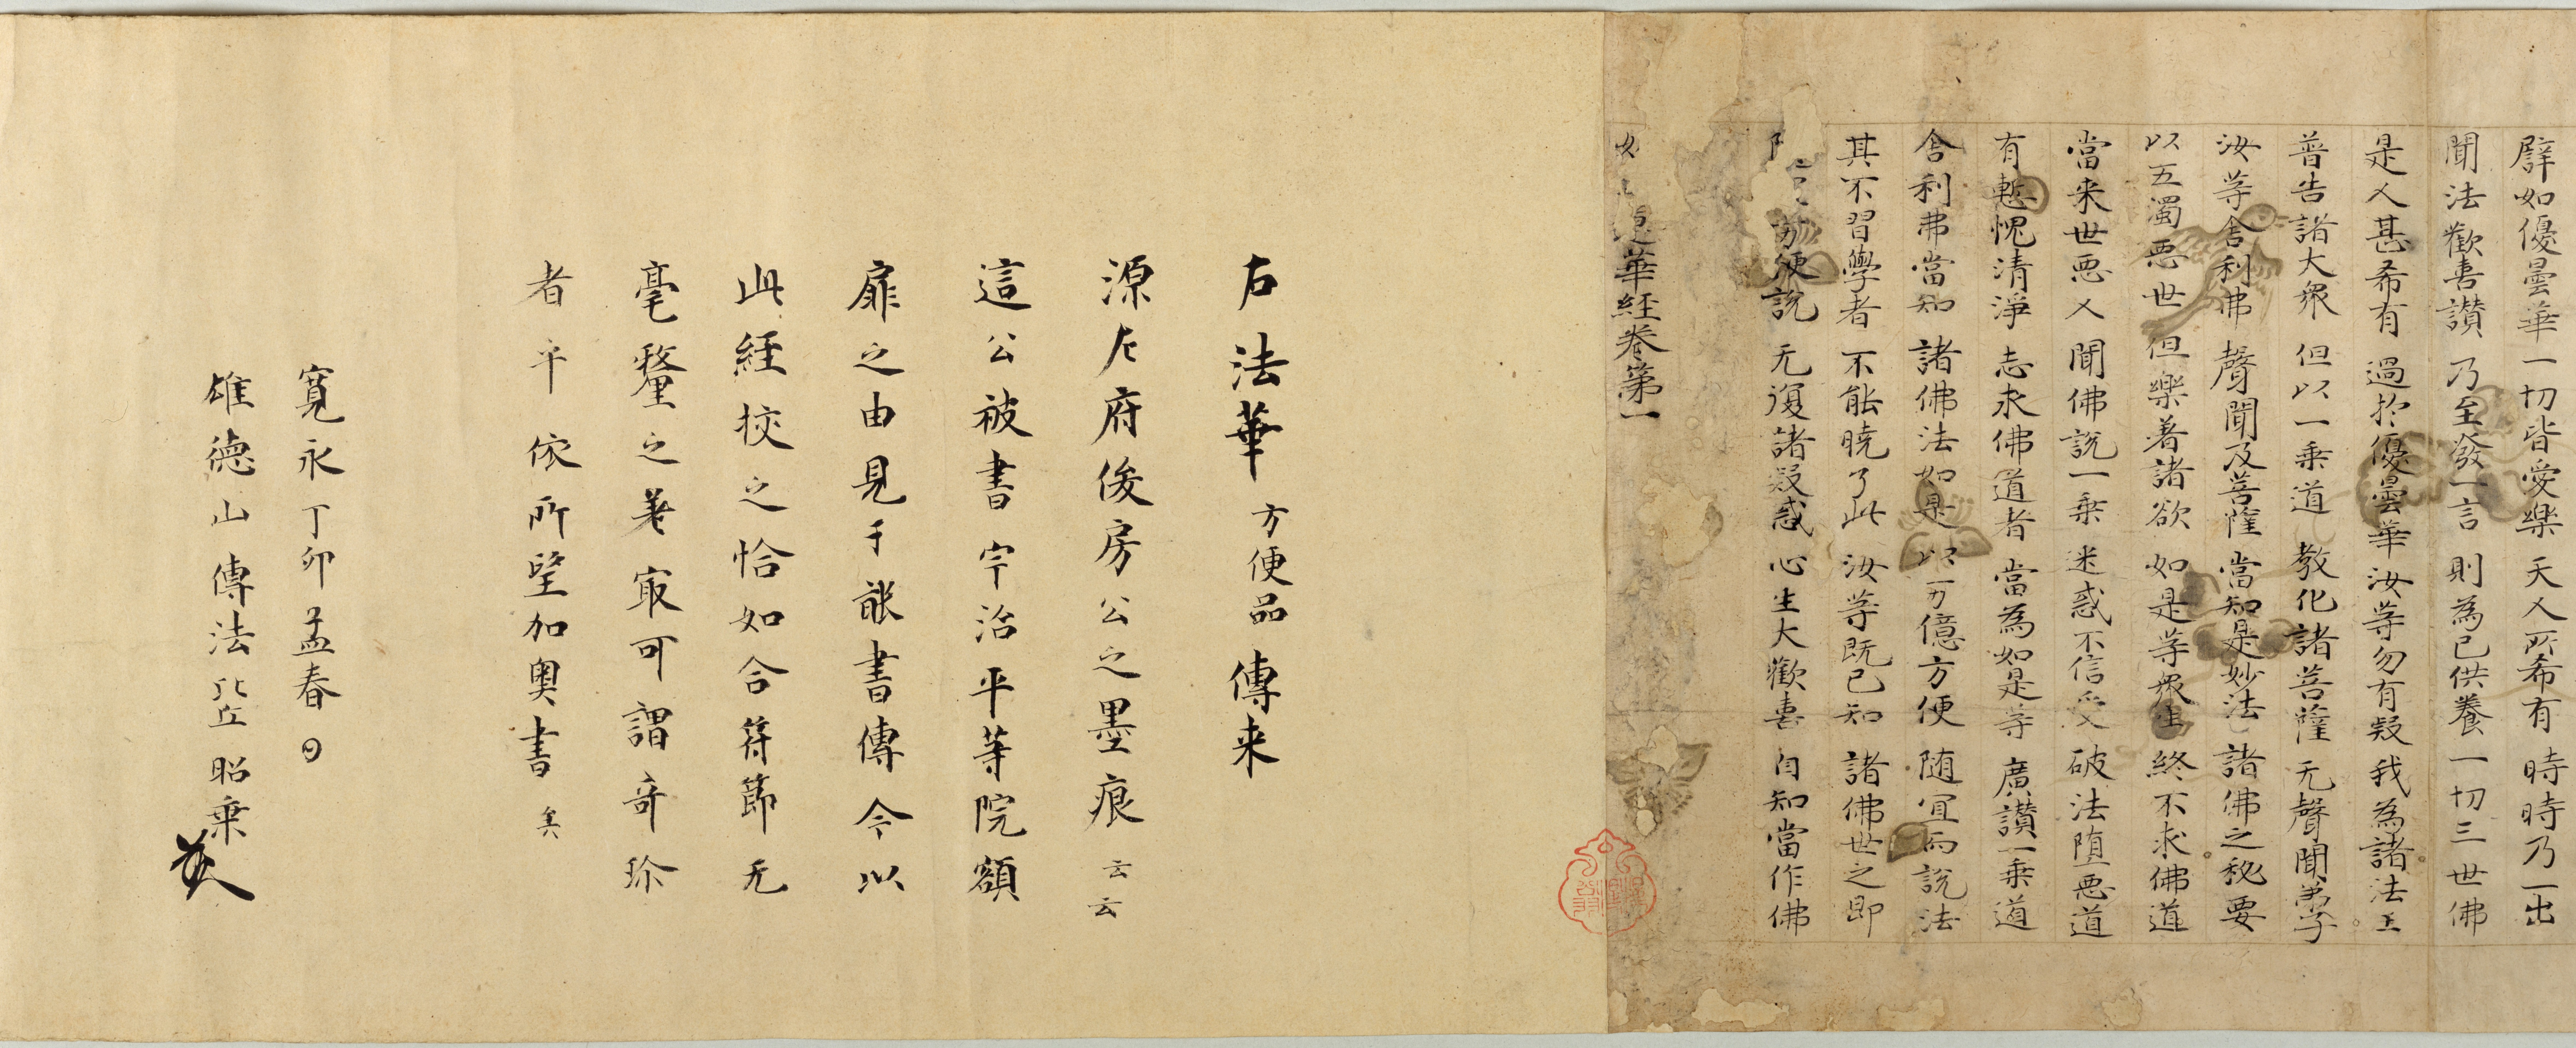 辟如優曇華 一切皆愛樂 天人所希有 時時乃一出
聞法歡喜讃 乃至發一言 則為已供養 一切三世佛
是人甚希有 過於優曇華 汝等勿有疑 我為諸法王
普告諸大衆 但以一乗道 教化諸菩薩 无聲聞弟子
汝等舎利弗 聲聞及菩薩 當知是妙法 諸佛之秘要
以五濁悪世 但樂著諸欲 如是等衆生 終不求佛道
當来世悪人 聞佛說一乗 迷惑不信受 破法墮悪道
有慙愧清淨 志求佛道者 當為如是等 廣讃一乗道
舎利弗當知 諸佛法如是 以万億方便 随宜而說法
其不習學者 不能曉了此 汝等既已知 諸佛世之師
方便說 无復諸疑惑 心生大歡喜 自知當作佛
蓮華経巻第一
右法華方便品傳来
源左府俊房公之墨痕云云
這公被書宇治平等院額
扉之由見于諸書傳今以
此経挍之恰如合符節无
毫釐之差寂可謂奇珍
者乎依所望加奥書矣
寛永丁卯孟春日
雄徳山傳法比丘昭乗